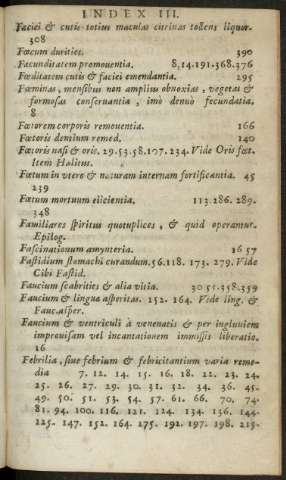 INDEX III.
Faciei & cutis totius maculas citrinas tollens liquor.
308
Fœcum durities. 390
Fæcunditatem promouentia. 8,14.191.368.376
Fœditatem cutis & faciei emendantia. 295
Fœminas, mensibus non amplius obnoxias, vegetas &
formosas conseruantia, imò denuò fecundatia.
8
Fœtorem corporis remouentia. 166
Fœtoris dentium remed. 140
Fœtoris nasi & oris. 29.53.58.107.234. Vide Oris fœt.
Item Halitus.
Fœtum in vtero & naturam internam fortificantia. 45
239
Fœtum mortuum elicientia. 113.286.289.
348
Familiares spiritus quotuplices, & quid operantur.
Epilog.
Fascinationum amynteria. 16 57
Fastidium stomachi curandum. 56.118. 173. 279. Vide
Cibi Fastid.
Faucium scabrities & alia vitia. 30 51.358.359
Faucium & linguæ asperitas. 152. 164. Vide ling. &
Fauc.asper.
Faucium & ventriculi à venenatis & per ingluuiem
improuisam vel incantationem immissis liberatio.
16
Febrilia, siue febrium & febricitantium varia reme-
dia 7. 12. 14. 15. 16. 18. 22. 23. 24.
25. 26. 27. 29. 30. 31. 32. 34. 36. 45.
49. 50. 51. 53. 54. 57. 61. 66. 70. 74.
81. 94. 100. 116. 121. 124. 134. 136. 144.
225. 147. 152. 164. 175. 192. 197. 198. 215.